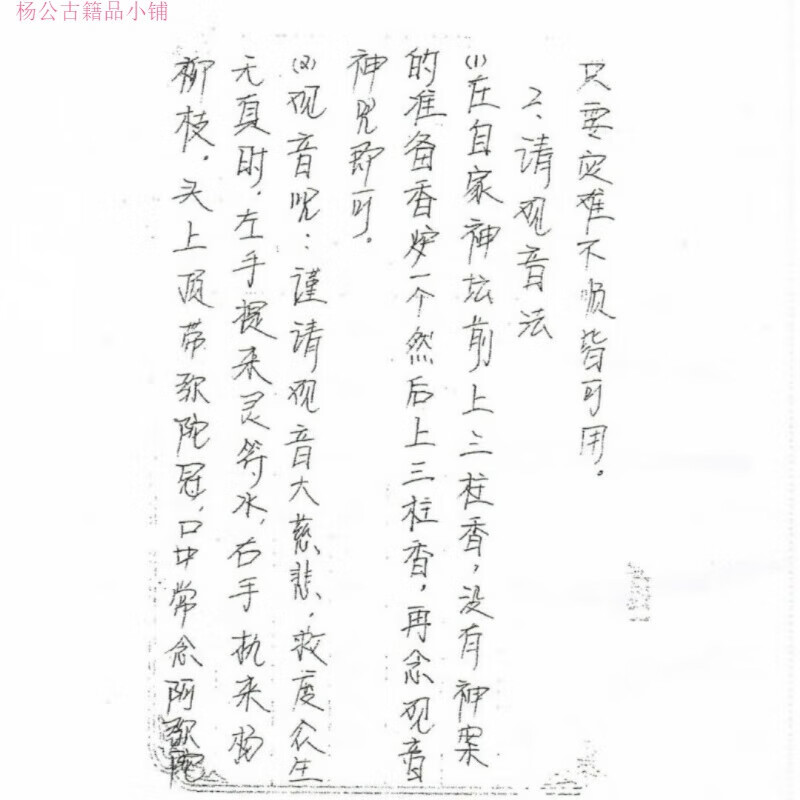 杨公古籍品小铺
只要灾难不顺皆可用。
2、请观音法
(1)在自家神坛前上三柱香，没有神案
的准备香炉一个然后上三柱香，再念观音
神咒即可。
(2)观音咒：谨请观音大慈悲，救度众生
无真时，左手提来灵符水，右手执来杨
柳枝，头上顶带弥陀冠，口中常念阿弥陀